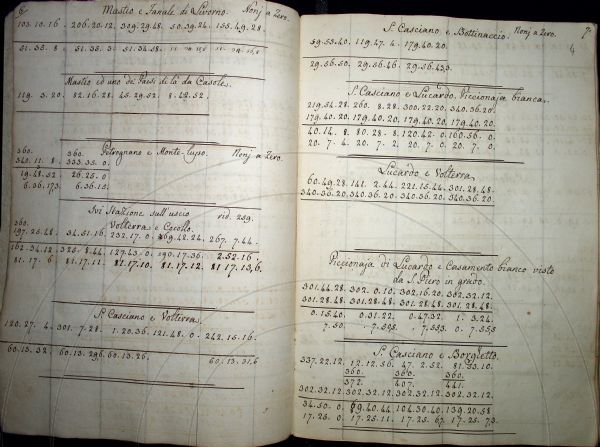 6
Mastio e Fanale di Livorno. Nonj a Zero.
103. 10. 16. 206. 20. 12. 309. 29. 48. 50. 39. 24. 155. 49. 28.
51. 35. 8. 51. 35. 3. 51. 34. 58.
Mastio ed uno de Paesi di là da Casole.
119. 3. 20. 82. 16. 28. 45. 29. 52. 8. 42. 52.
Petrognano e Monte Lupo. Nonj a Zero.
360. 360.
340. 11. 8. 333. 35. 0.
19. 48. 52 26. 25. 0
6. 36. 17⅓. 6. 36. 15.
Ivi Stazione sull'uscio rid. 259.
Volterra e Cocollo.
360.
197. 25. 48. 34. 51. 16. 232. 17. 0. 69. 42. 24. 267. 7. 44.
162. 34. 12. 325. 8. 44. 127. 43. 0. 190. 17. 36. 2. 52. 16.
81. 17. 6. 81. 17. 11. 81. 17. 10. 81. 17. 12. 81. 17. 13,6.
S. Casciano e Volterra.
120. 27. 4. 301. 7. 28. 1. 20. 36. 121. 48. 0. 242. 15. 16.
60. 13. 32. 60. 13. 29⅔. 60. 13. 26. 60. 13. 31,6
7.
S. Casciano e Bottinaccio. Nonj a Zero.
4
59. 53. 40. 119. 47. 4. 179. 40. 20.
29. 56. 50. 29. 56. 46. 29. 56. 43⅓.
S. Casciano e Lucardo. Piccionaja bianca.
219. 54. 28. 260. 8. 28. 300. 22. 20. 340. 36. 20.
179. 40. 20. 179. 40. 20. 179. 40. 20. 179. 40. 20.
40. 14. 8. 80. 28. 8. 120. 42. 0. 160. 56. 0.
20. 7. 4. 20. 7. 2. 20. 7. 0. 20. 7. 0.
Lucardo e Volterra
60. 49. 28. 141. 2. 44. 221. 15. 44. 301. 28. 48.
340. 36. 20. 340. 36. 20. 340. 36. 20. 340. 36. 20.
Piccionaja di Lucardo e Casamento bianco visto
da S. Piero in grado.
301. 44. 28. 302. 0. 10. 302. 16. 20. 302. 32. 12.
301. 28. 48. 301. 28. 48. 301. 28. 48. 301. 28. 48.
0. 15. 40. 0. 31. 22. 0. 47. 32. 1. 3. 24.
S. Casciano e Borgietto.
337. 22. 12. 12. 12. 56. 47. 2. 52. 81. 53. 10.
360. 360. 360.
372. 407. 441.
302. 32. 12. 302. 32. 12. 302. 32. 12. 302. 32. 12.
34. 50. 0. 69. 40. 44. 104. 30. 40. 139. 20. 58
17. 25. 0. 17. 25. 11. 17. 25. 6⅔. 17. 25. 7⅓.